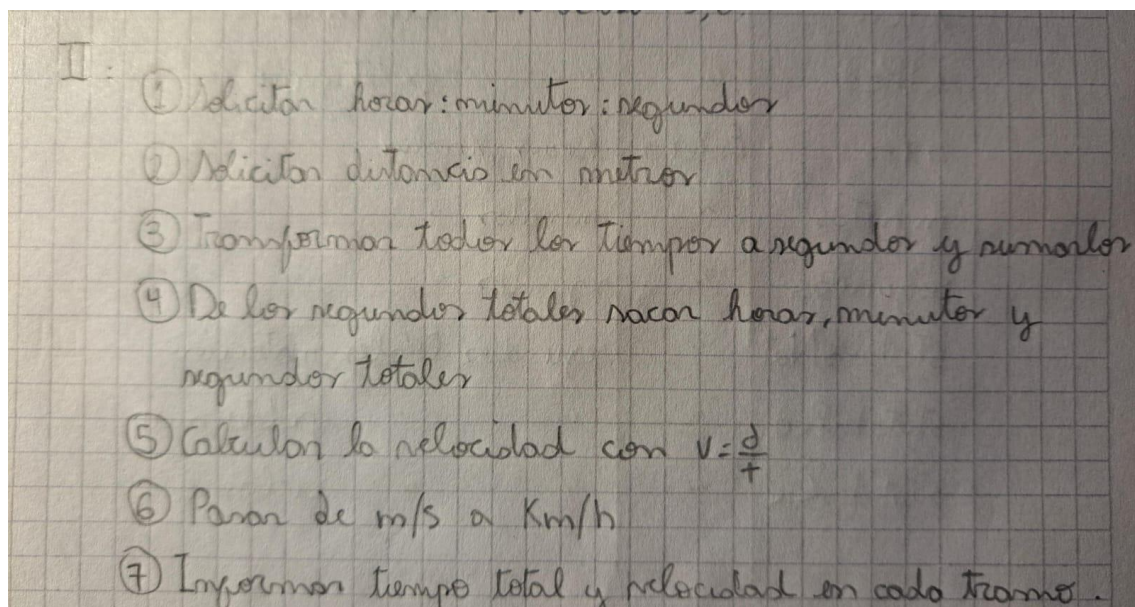 II:
① Solicitar horas:minutos:segundos
② Solicitar distancia en metros
③ Transformar todos los tiempos a segundos y sumarlos
④ De los segundos totales sacar horas, minutos y
segundos totales
⑤ Calcular la velocidad con v = d/t
⑥ Pasar de m/s a Km/h
⑦ Informar tiempo total y velocidad en cada tramo.